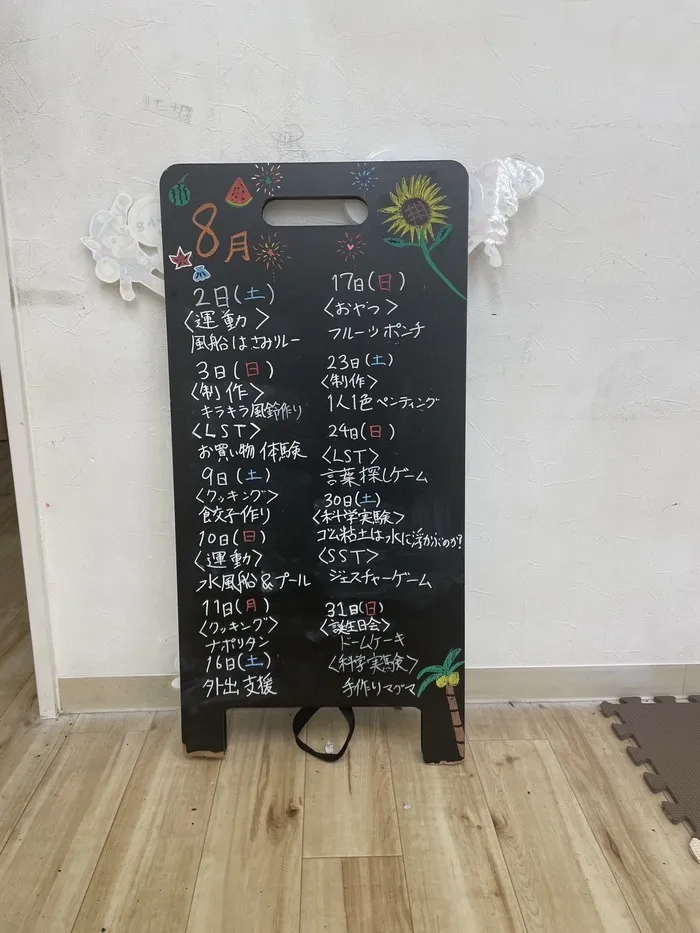 8月
2日(土)
〈運動〉
風船はさみリレー
3日(日)
〈制作〉
キラキラ風鈴作り
〈LST〉
お買い物体験
9日(土)
〈クッキング〉
餃子作り
10日(日)
〈運動〉
水風船&プール
11日(月)
〈クッキング〉
ナポリタン
16日(土)
外出支援
17日(日)
〈おやつ〉
フルーツポンチ
23日(土)
〈制作〉
1人1色ペンティング
24日(日)
〈LST〉
言葉探しゲーム
30日(土)
〈科学実験〉
ゴム粘土は水に浮かぶのか?
〈SST〉
ジェスチャーゲーム
31日(日)
〈誕生日会〉
ドームケーキ
〈科学実験〉
手作りマグマ